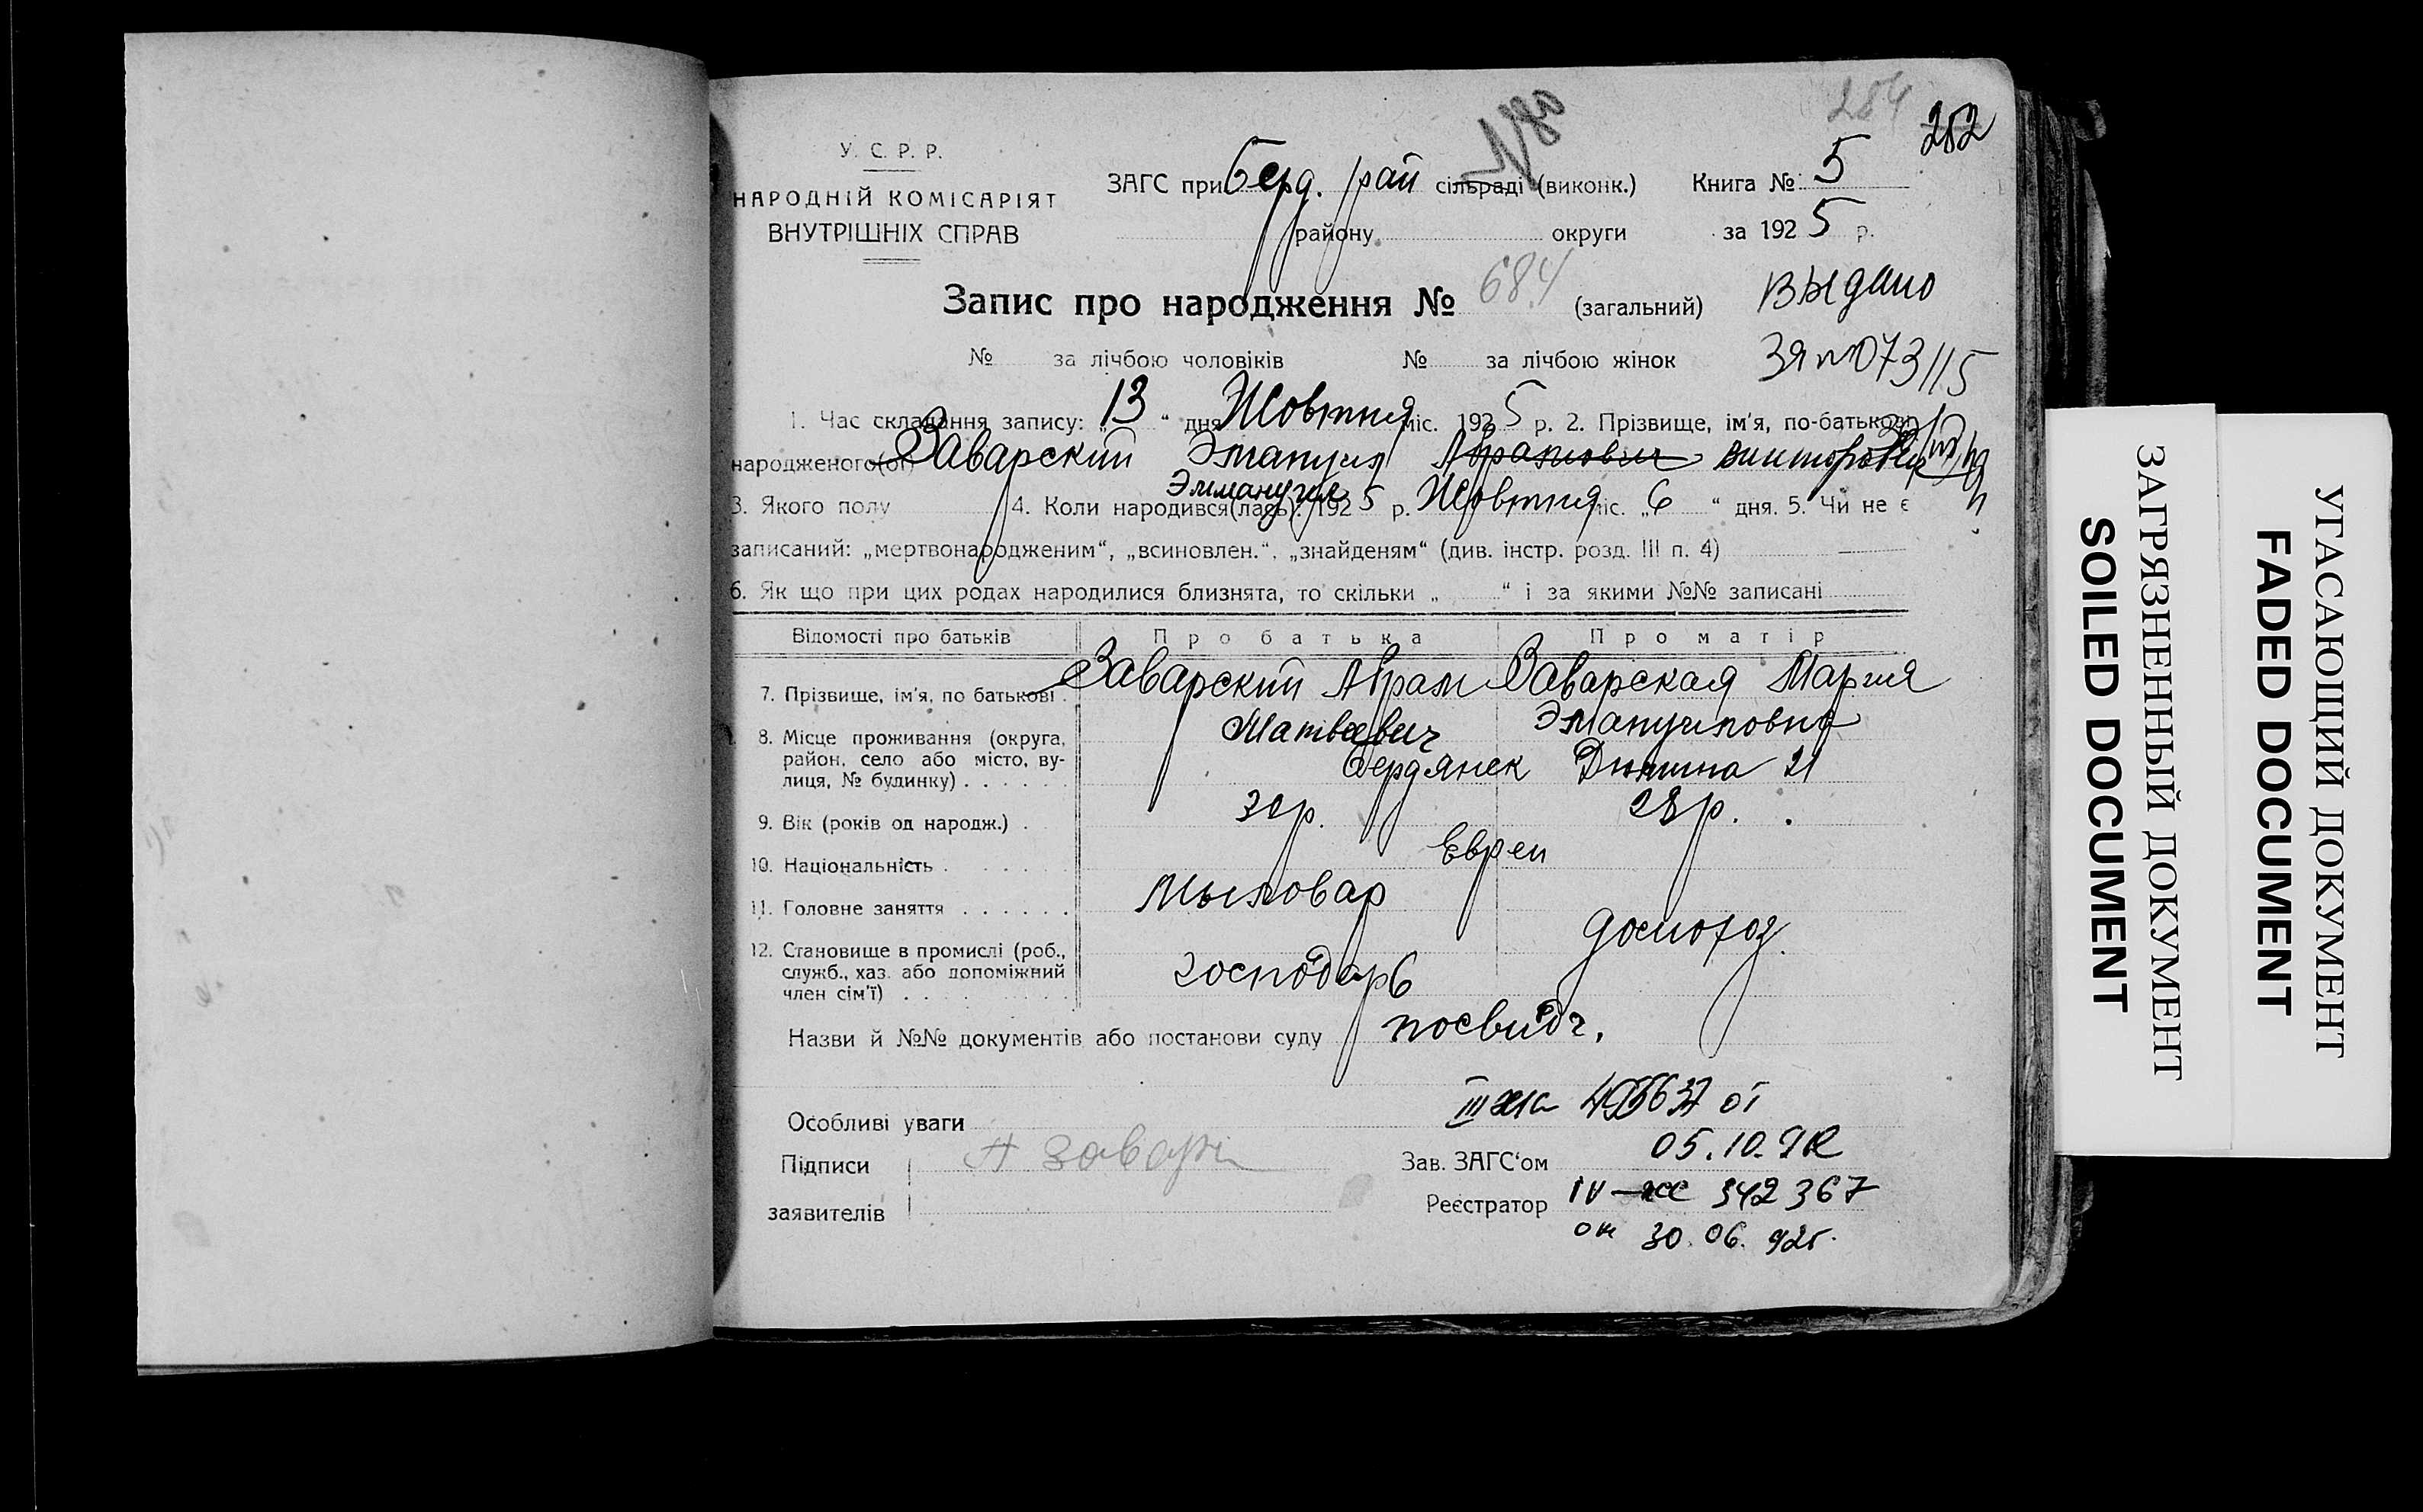 284
252
№80
У. С. Р. Р.
НАРОДНІЙ КОМІСАРІЯТ
ВНУТРІШНІХ СПРАВ
ЗАГС при Берд. рай сільраді (виконк.) Книга № 5
району округи за 1925 р.
Запис про народження № 684 (загальний)
выдано
№ за лічбою чоловіків № за лічбою жінок
ЗЯ №073115
1. Час складання запису: „13“ дня Жовтня міс. 1925 р. 2. Прізвище, ім'я, по-батькові
народженого(ої) Заварский Эмануил Абрамович Викторович
Эммануил
3. Якого полу 4. Коли народився(лась): 1925 р. Жовтня міс. „6“ дня. 5. Чи не є
записаний: „мертвонародженим“, „всиновлен.“, „знайденям“ (див. інстр. розд. III п. 4)
6. Як що при цих родах народилися близнята, то скільки „ “ і за якими №№ записані
Відомості про батьків Про батька Про матір
7. Прізвище, ім'я, по батькові Заварский Абрам Заварская Мария
Матвеевич Эмануиловна
8. Місце проживання (округа,
район, село або місто, ву-
лиця, № будинку) Бердянск 21
9. Вік (років од народж.) р. 28р.
10. Національність Евреи
11. Головне заняття Мыловар
домогоз.
12. Становище в промислі (роб.,
служб., хаз. або допоміжний
член сім'ї) господарь
Назви й №№ документів або постанови суду посвидч.
Особливі уваги
05.10.
Підписи А Завар
Зав. ЗАГС'ом
заявителів
Реєстратор IV-жс 342367
от 30.06.92г.
ЗАГРЯЗНЕННЫЙ ДОКУМЕНТ
SOILED DOCUMENT
УГАСАЮЩИЙ ДОКУМЕНТ
FADED DOCUMENT